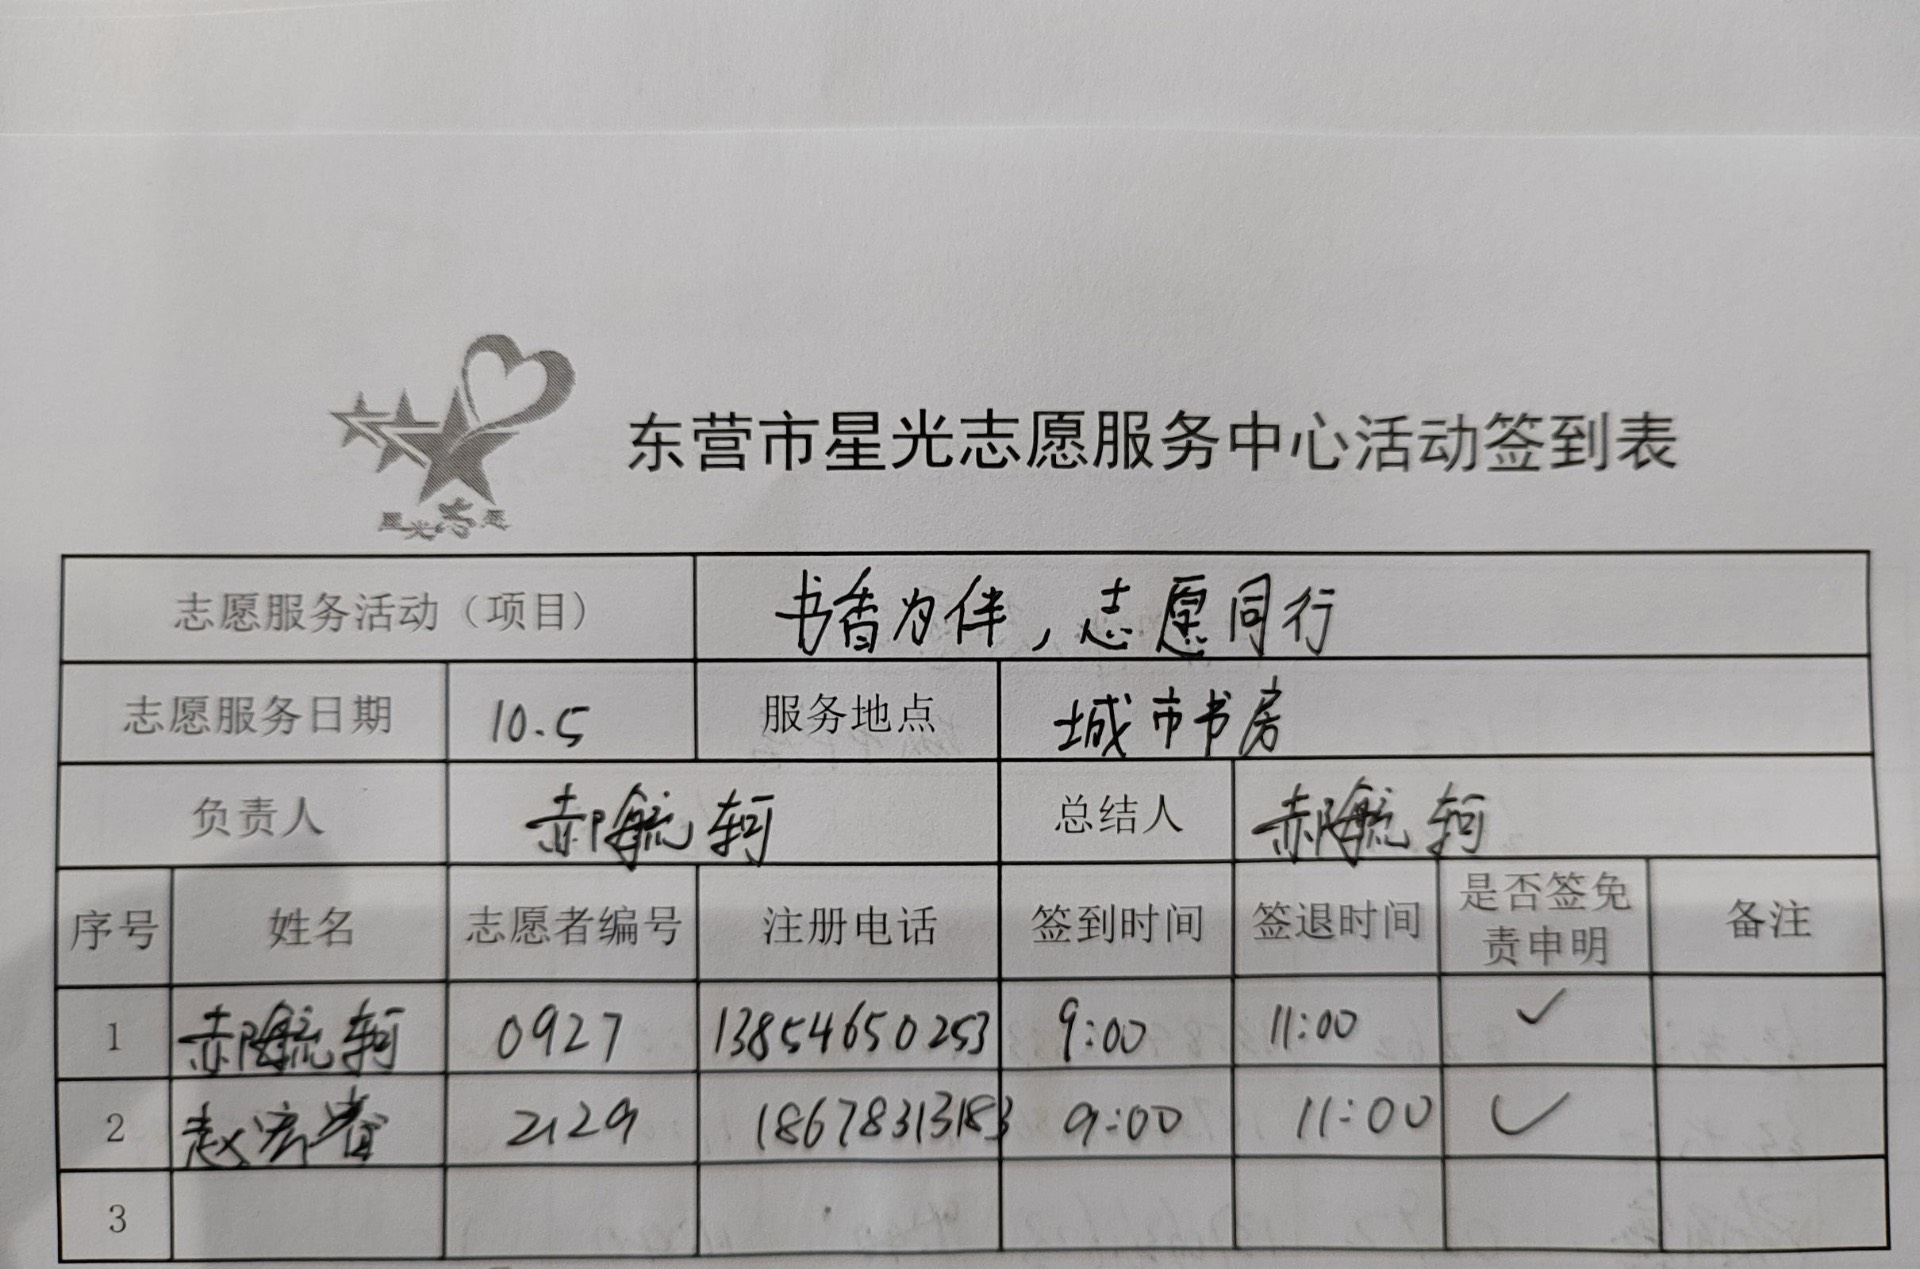 星光志愿
东营市星光志愿服务中心活动签到表
志愿服务活动（项目） 书香为伴，志愿同行
志愿服务日期 10.5 服务地点 城市书房
负责人 郝航轲 总结人 郝航轲
序号 姓名 志愿者编号 注册电话 签到时间 签退时间 是否签免责申明 备注
1 郝航轲 0927 13854650253 9:00 11:00 ✓
2 赵 2129 18678313183 9:00 11:00 ✓
3